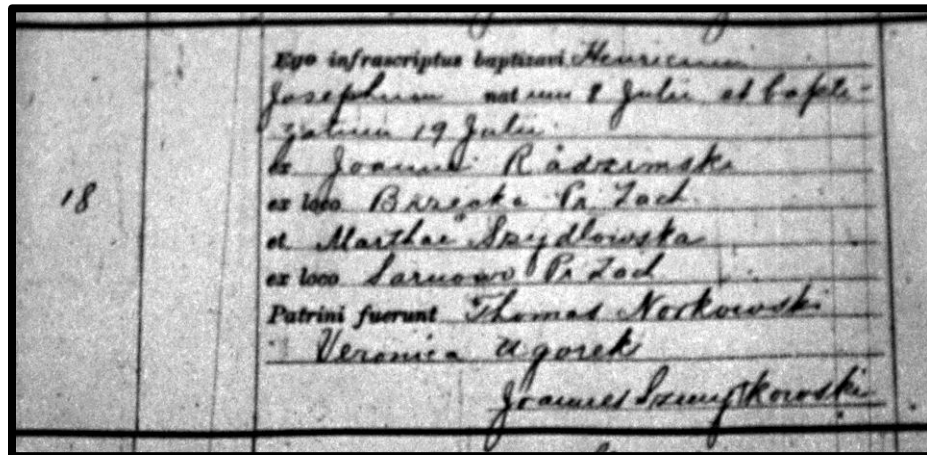 Ego infrascriptus baptizavi Henricum
Josephum natum 8 Julii et bapti-
zatum 19 Julii
ex Joanni Radzimski
18
ex loco Brzeake Pr Zach
et Marthae Szydlowska
ex loco Sarnowo Pr Zach
Patrini fuerunt Thomas Norkowski
Veronica Ugorek
Joannes Szmytkowski